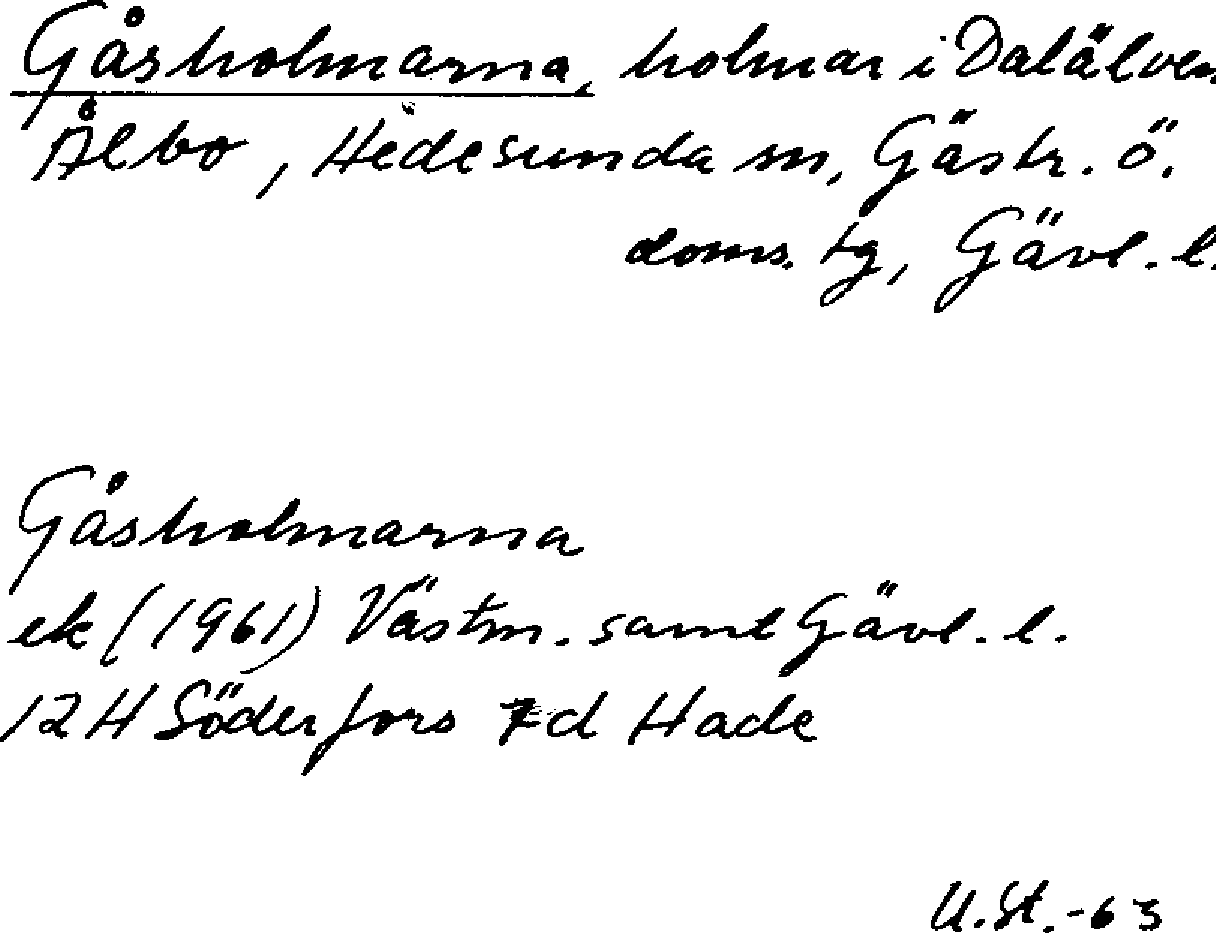 Gåsholmarna, holmar i Dalälven
Ålbo, Hedesunda sn, Gästr. ö.
doms. tg, Gävl. l.
Gåsholmarna
ek (1961) Västm. samt Gävl. l.
12 H Söderfors 7d Hade
U. St. -63